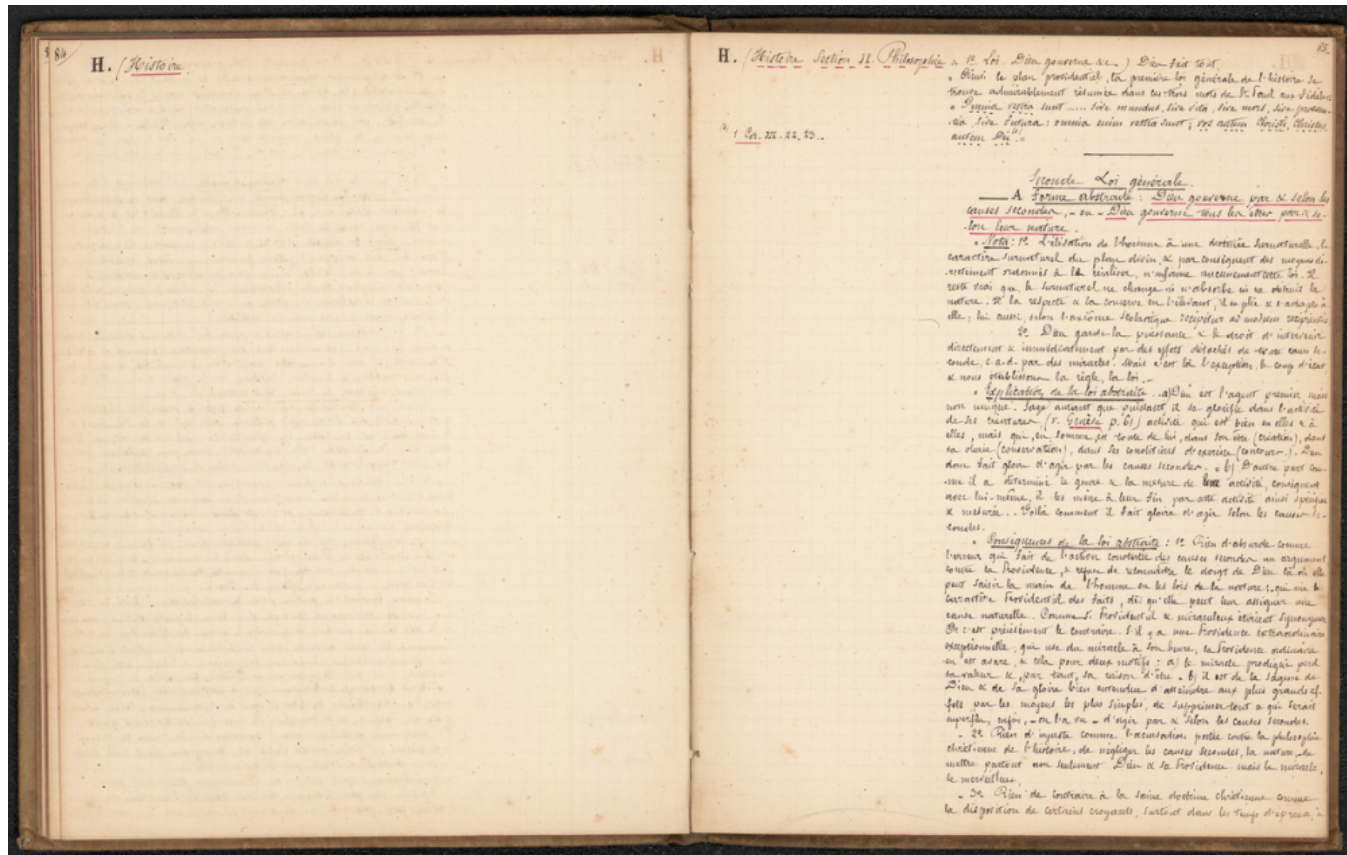 84
H. (Histoire
85.
H. (Histoire Section II. Philosophie = 1e Loi. Dieu gouverne &c.) Dieu fait tout.
" Ainsi le plan providentiel, la première loi générale de l'histoire se
trouve admirablement résumée dans ces trois mots de St Paul aux fidèles:
" Omnia vestra sunt ..... sive mundus, sive vita, sive mors, sive præsen-
tia, sive futura: omnia enim vestra sunt; vos autem Christi, Christus
autem Dei (1). "
(1) 1 Cor. III. 22, 23. -
Seconde Loi générale.
A Forme abstraite: Dieu gouverne par & selon les
causes secondes, - ou - Dieu gouverne tous les êtres par & se-
lon leur nature.
" Nota: 1e L'élévation de l'homme à une destinée surnaturelle, le
caractère surnaturel du plan divin, & par conséquent des moyens di-
rectement ordonnés à le réaliser, n'infirme aucunement cette loi. Il
reste vrai que le surnaturel ne change ni n'absorbe ni ne détruit la
nature. Il la respecte & la conserve en l'élevant, il se plie & s'adapte à
elle; lui aussi, selon l'axiôme scolastique recipitur ad modum recipientis
2e Dieu garde la puissance & le droit d'intervenir
directement & immédiatement par des effets détachés de toute cause se-
conde, c.a.d. par des miracles. Mais c'est là l'exception, le coup d'état
& nous établissons la règle, la loi. -
" Explication de la loi abstraite. - a) Dieu est l'agent premier mais
non unique. Sage autant que puissant il se glorifie dans l'activité
de ses créatures, (v. Genèse p. 61) activité qui est bien en elles & à
elles, mais qui, en somme, est toute de lui, dans son être (création), dans
sa durée (conservation), dans ses conditions d'exercice (concours.). Dieu
donc fait gloire d'agir par les causes secondes. - b) D'autre part com-
me il a déterminé le genre & la mesure de leur activité, conséquent
avec lui-même, il les mène à leur fin par cette activité ainsi spécifiée
& mesurée. - Voilà comment il fait gloire d'agir selon les causes se-
condes.
" Conséquences de la loi abstraite: 1e Rien d'absurde comme
l'erreur qui fait de l'action constatée des causes secondes un argument
contre la Providence, & refuse de reconnaître le doigt de Dieu là où elle
peut saisir la main de l'homme ou les lois de la nature; qui nie le
caractère Providentiel des faits, dès qu'elle peut leur assigner une
cause naturelle. Comme si Providentiel & miraculeux étaient synonymes
Or c'est précisément le contraire. S'il y a une Providence extraordinaire
exceptionnelle, qui use du miracle à son heure, la Providence ordinaire
en est avare, & cela pour deux motifs: a) le miracle prodigué perd
sa valeur &, par tant, sa raison d'être. - b) il est de la sagesse de
Dieu & de sa gloire bien entendue d'atteindre aux plus grands ef-
fets par les moyens les plus simples, de supprimer tout ce qui serait
superflu, enfin, - on l'a vu - d'agir par & selon les causes secondes.
- 2e Rien d'injuste comme l'accusation portée contre la philosophie
chrétienne de l'histoire, de négliger les causes secondes, la nature, de
mettre partout non seulement Dieu & sa Providence mais le miracle,
le merveilleux.
- 3e Rien de contraire à la saine doctrine chrétienne comme
la disposition de certains croyants, surtout dans les temps d'épreuve, à